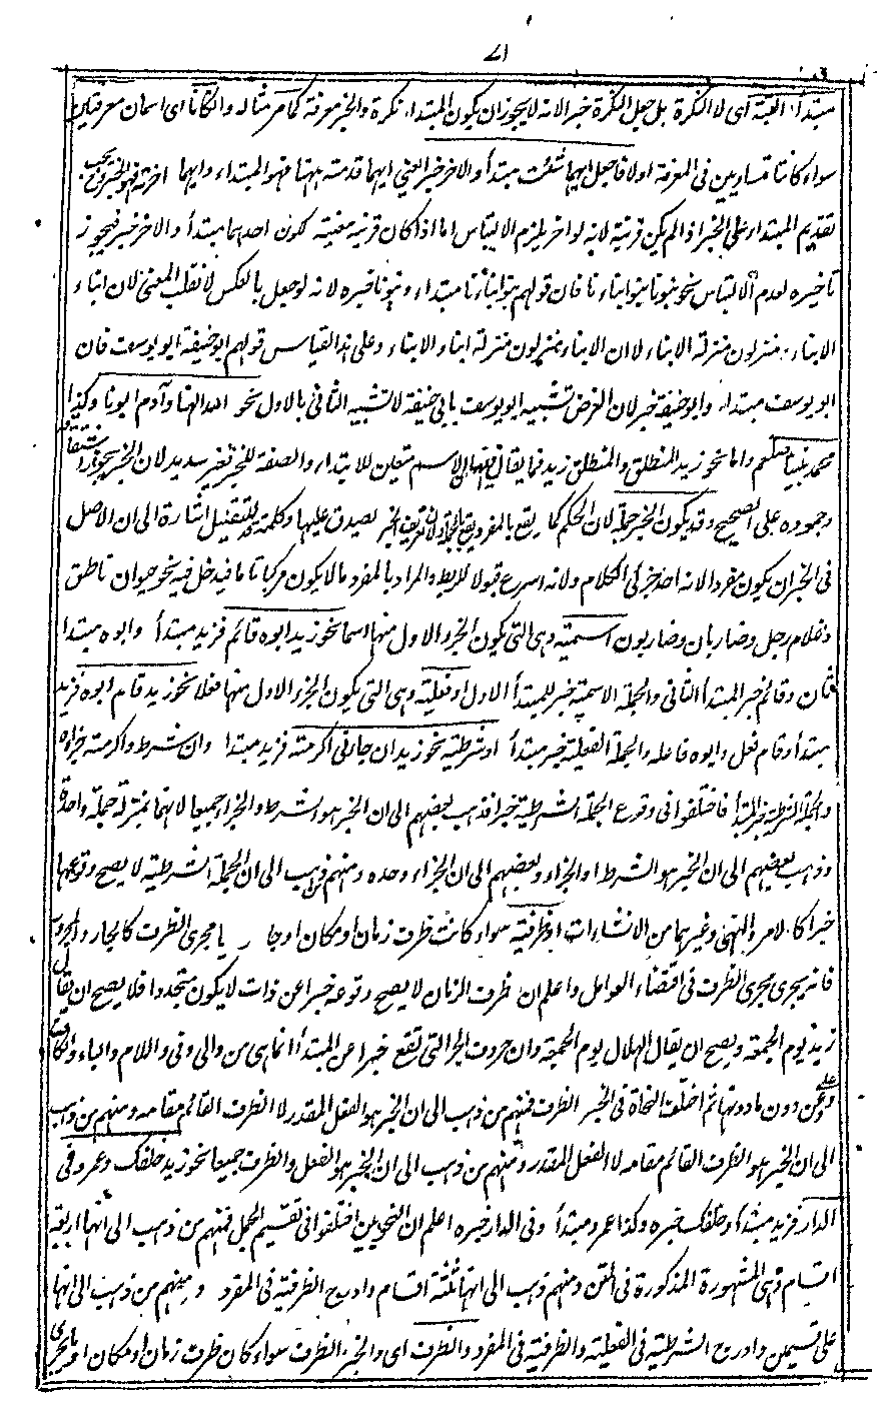 ٧١
مبتدأ البتة أي لا النكرة بل جعل النكرة خبرا لانه لا يجوز ان يكون المبتداء نكرة والخبر معرفة كما مر مثاله وان كانا اي اسمان معرفتين
سواء كانتا متساويين في المعرفة اولا فاجعل ايهما شئت مبتدأ والاخر خبرا يعني ايهما قدمته منهما فهو المبتداء وايهما اخرته فهو الخبر ويجب
تقديم المبتداء على الخبر اذا لم يكن قرينة لانه لو اخر يلزم الالتباس اما اذا كان قرينة معينة كون احدهما مبتدأ والاخر خبر فيجوز
تاخيره لعدم الالتباس نحو بنونا بنو ابناءنا فان قولهم بنو ابنائنا مبتداء وبنونا خبره لانه لو جعل بالعكس لانقلب المعنى لان ابناء
الابناء ينزلون منزلة الابناء لا ان الابناء ينزلون منزلة ابناء الابناء وعلى هذا القياس قولهم ابو حنيفة ابو يوسف فان
ابو يوسف مبتداء وابو حنيفة خبر لان الغرض تشبيه ابو يوسف بابي حنيفة لا تشبيه الثاني بالاول نحو الله الهنا وآدم ابونا وكذا
محمد نبينا صلعم واما نحو زيد المنطلق والمنطلق زيد فما يقال فيهما ان الاسم متعين للابتداء والصفة للخبر فغير سديد لان الخبر يجوز اشتقاقه
وجموده على الصحيح وقد يكون الخبر جملة لان الحكم كما يقع بالمفرد يقع بالجملة ولان تعريف الخبر يصدق عليها وكلمة قد للتقليل اشارة الى ان الاصل
في الخبر ان يكون مفردا لانه احد جزئي الكلام ولانه اسرع قبولا للربط والمراد بالمفرد ما لا يكون مركبا تاما فيدخل فيه نحو حيوان ناطق
وغلام رجل وضاربان وضاربون اسمية وهي التي يكون الجزء الاول منها اسما نحو زيد ابوه قائم فزيد مبتدأ وابوه مبتدا
ثان وقائم خبر المبتدأ الثاني والجملة الاسمية خبر للمبتدأ الاول او فعلية وهي التي يكون الجزء الاول منها فعلا نحو زيد قام ابوه فزيد
مبتدأ وقام فعل وابوه فاعله والجملة الفعلية خبر مبتدأ او شرطية نحو زيد ان جاءني اكرمته فزيد مبتدا وان شرط واكرمته جزاءه
والجملة الشرطية خبر المبتدأ فاختلفوا في وقوع الجملة الشرطية خبرا فذهب بعضهم الى ان الخبر هو الشرط والجزاء جميعا لانهما بمنزلة جملة واحدة
وذهب بعضهم الى ان الخبر هو الشرط او الجزاء وبعضهم الى ان الجزاء وحده ومنهم من ذهب الى ان الجملة الشرطية لا يصح وقوعها
خبرا كالامر والنهي وغيرهما من الانشاءات او ظرفية سواء كانت ظرف زمان او مكان او جاريا مجرى الظرف كالجار والمجرور
فانه يجري مجرى الظرف في اقتضاء العوامل واعلم ان ظرف الزمان لا يصح وقوعه خبرا عن ذات لا يكون متجددا فلا يصح ان يقال
زيد يوم الجمعة ويصح ان يقال الهلال يوم الجمعة وان حروف الجر التي تقع خبرا عن المبتدأ انما هي من والى وفي واللام والباء والكاف
وعلى وعن دون مادونها ثم اختلف النحاة في الخبر الظرف فمنهم من ذهب الى ان الخبر هو الفعل المقدر لا الظرف القائم مقامه ومنهم من ذهب
الى ان الخبر هو الظرف القائم مقامه لا الفعل المقدر ومنهم من ذهب الى ان الخبر هو الفعل والظرف جميعا نحو زيد خلفك وعمرو في
الدار فزيد مبتدأ وخلفك خبره وكذا عمرو مبتدأ وفي الدار خبره اعلم ان النحويين اختلفوا في تقسيم الجمل فمنهم من ذهب الى انها اربعة
اقسام وهي المشهورة المذكورة في المتن ومنهم ذهب الى انها ثلثة اقسام وادرج الظرفية في المفرد ومنهم من ذهب الى انها
على قسمين وادرج الشرطية في الفعلية والظرفية في المفرد والظرف اي والخبر الظرف سواء كان ظرف زمان او مكان او ما يجري